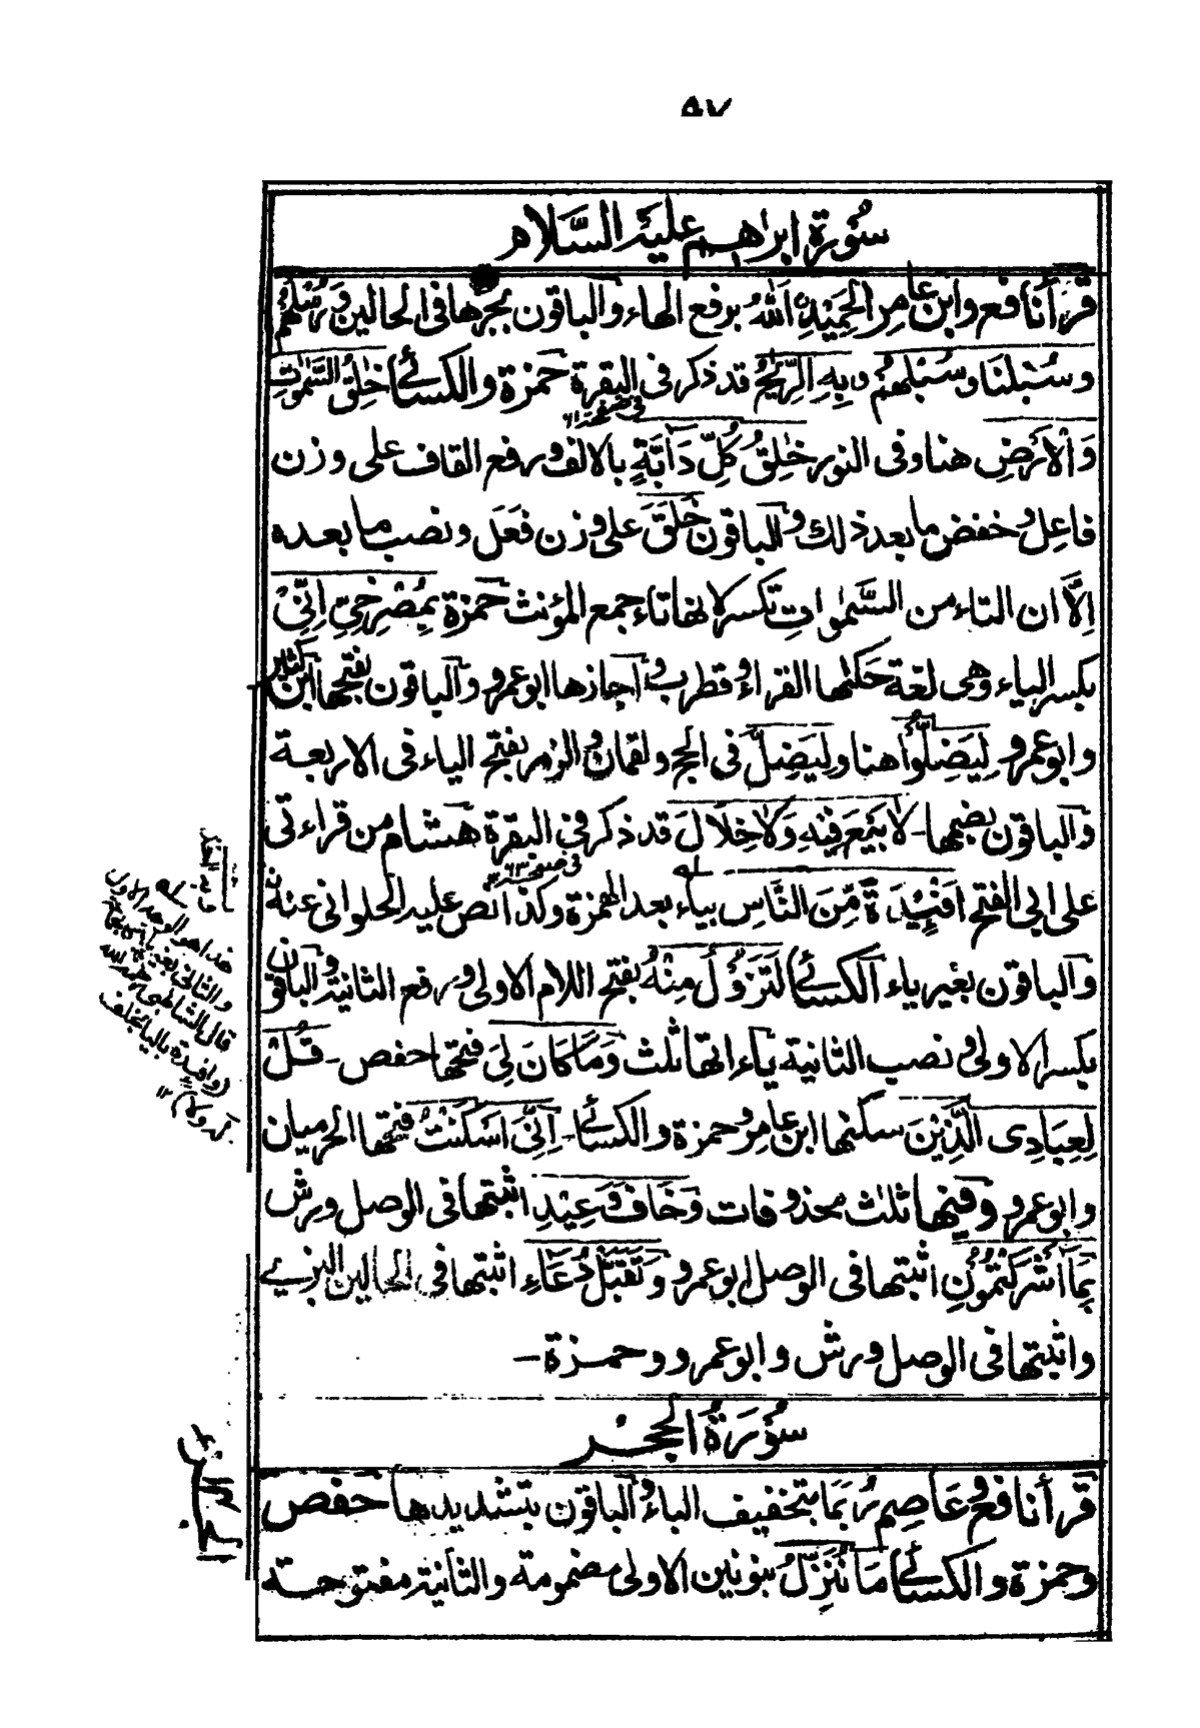 ٥٧
سُوْرَةُ ابرٰاهِيم عليهِ السَّلام
قرأ نافع وابن عامر الحَمِيْدِ اَللّٰهُ برفع الهاء والباقون بجرها فى الحالين ورُسُلُهُم
وسُبُلَنَا وسُبُلَهُم وبِهِ الرِّيْحُ قد ذكر فى البقرة حمزة والكسائى خٰلِقُ السَّمٰوٰتِ
فى صفحہ ٦١
وَالْاَرْضِ هنا وفى النور خٰلِقُ كُلِّ دَآبَّةٍ بالالف ورفع القاف على وزن
فاعِل وخفض ما بعد ذلك والباقون خَلَقَ على وزن فَعَلَ ونصب ما بعده
اِلَّا ان التاء من السَّمٰوٰتِ تكسر لانها تاء جمع المؤنث حمزة بِمُصْرِخِيِّ اِنِّيْ
بكسر الياء وهى لغة حكٰها الفراء وقطرب واجازها ابو عمرو والباقون بفتحها ابن كثير
وابو عمرو لِيَضِلُّوْا هنا ولِيَضِلَّ فى الحج ولقمان والزمر بفتح الياء فى الاربعة
والباقون بضمها - لَا بَيْعَ فِيْهِ وَلَا خِلَالَ قد ذكر فى البقرة هشام من قراءتى
فى صفحہ ٦٣
على ابى الفتح اَفْئِيْدَةً مِّنَ النَّاسِ بياء بعد الهمزة وكذا نص عليه الحلوانى عنه
والباقون بغير ياء الكسائى لَتَزُوْلُ مِنْهُ بفتح اللام الاولى ورفع الثانية والباقون
بكسر الاولى ونصب الثانية ياء اتها ثلث وَمَا كَانَ لِيَ فتحها حفص - قُلْ
لِعِبَادِى الَّذِيْنَ سكنها ابن عامر وحمزة والكسائى - اِنِّيَ اَسْكَنْتُ فتحها الحرميان
وابو عمرو وفيها ثلٰث محذوفات وَخَافَ وَعِيْدِ اثبتها فى الوصل ورش
بِمَا اَشْرَكْتُمُوْنِ اثبتها فى الوصل ابو عمرو وَتَقَبَّلْ دُعَاءِ اثبتها فى الحالين البزى
واثبتها فى الوصل ورش وابو عمرو وحمزة -
سُوْرَةُ الحِجْر
قرأ نافع وعَاصِم رُبَمَا بتخفيف الباء والباقون بتشديدها حفص
وحمزة والكسائى مَا نُنَزِّلُ بنونين الاولى مضمومة والثانية مفتوحة
هذا هو الوجه الاول
والثانى بغير ياء
قال الشاطبى رحمه الله
وافئيدة باليا بخلف
له ولا ١٢
الجزء